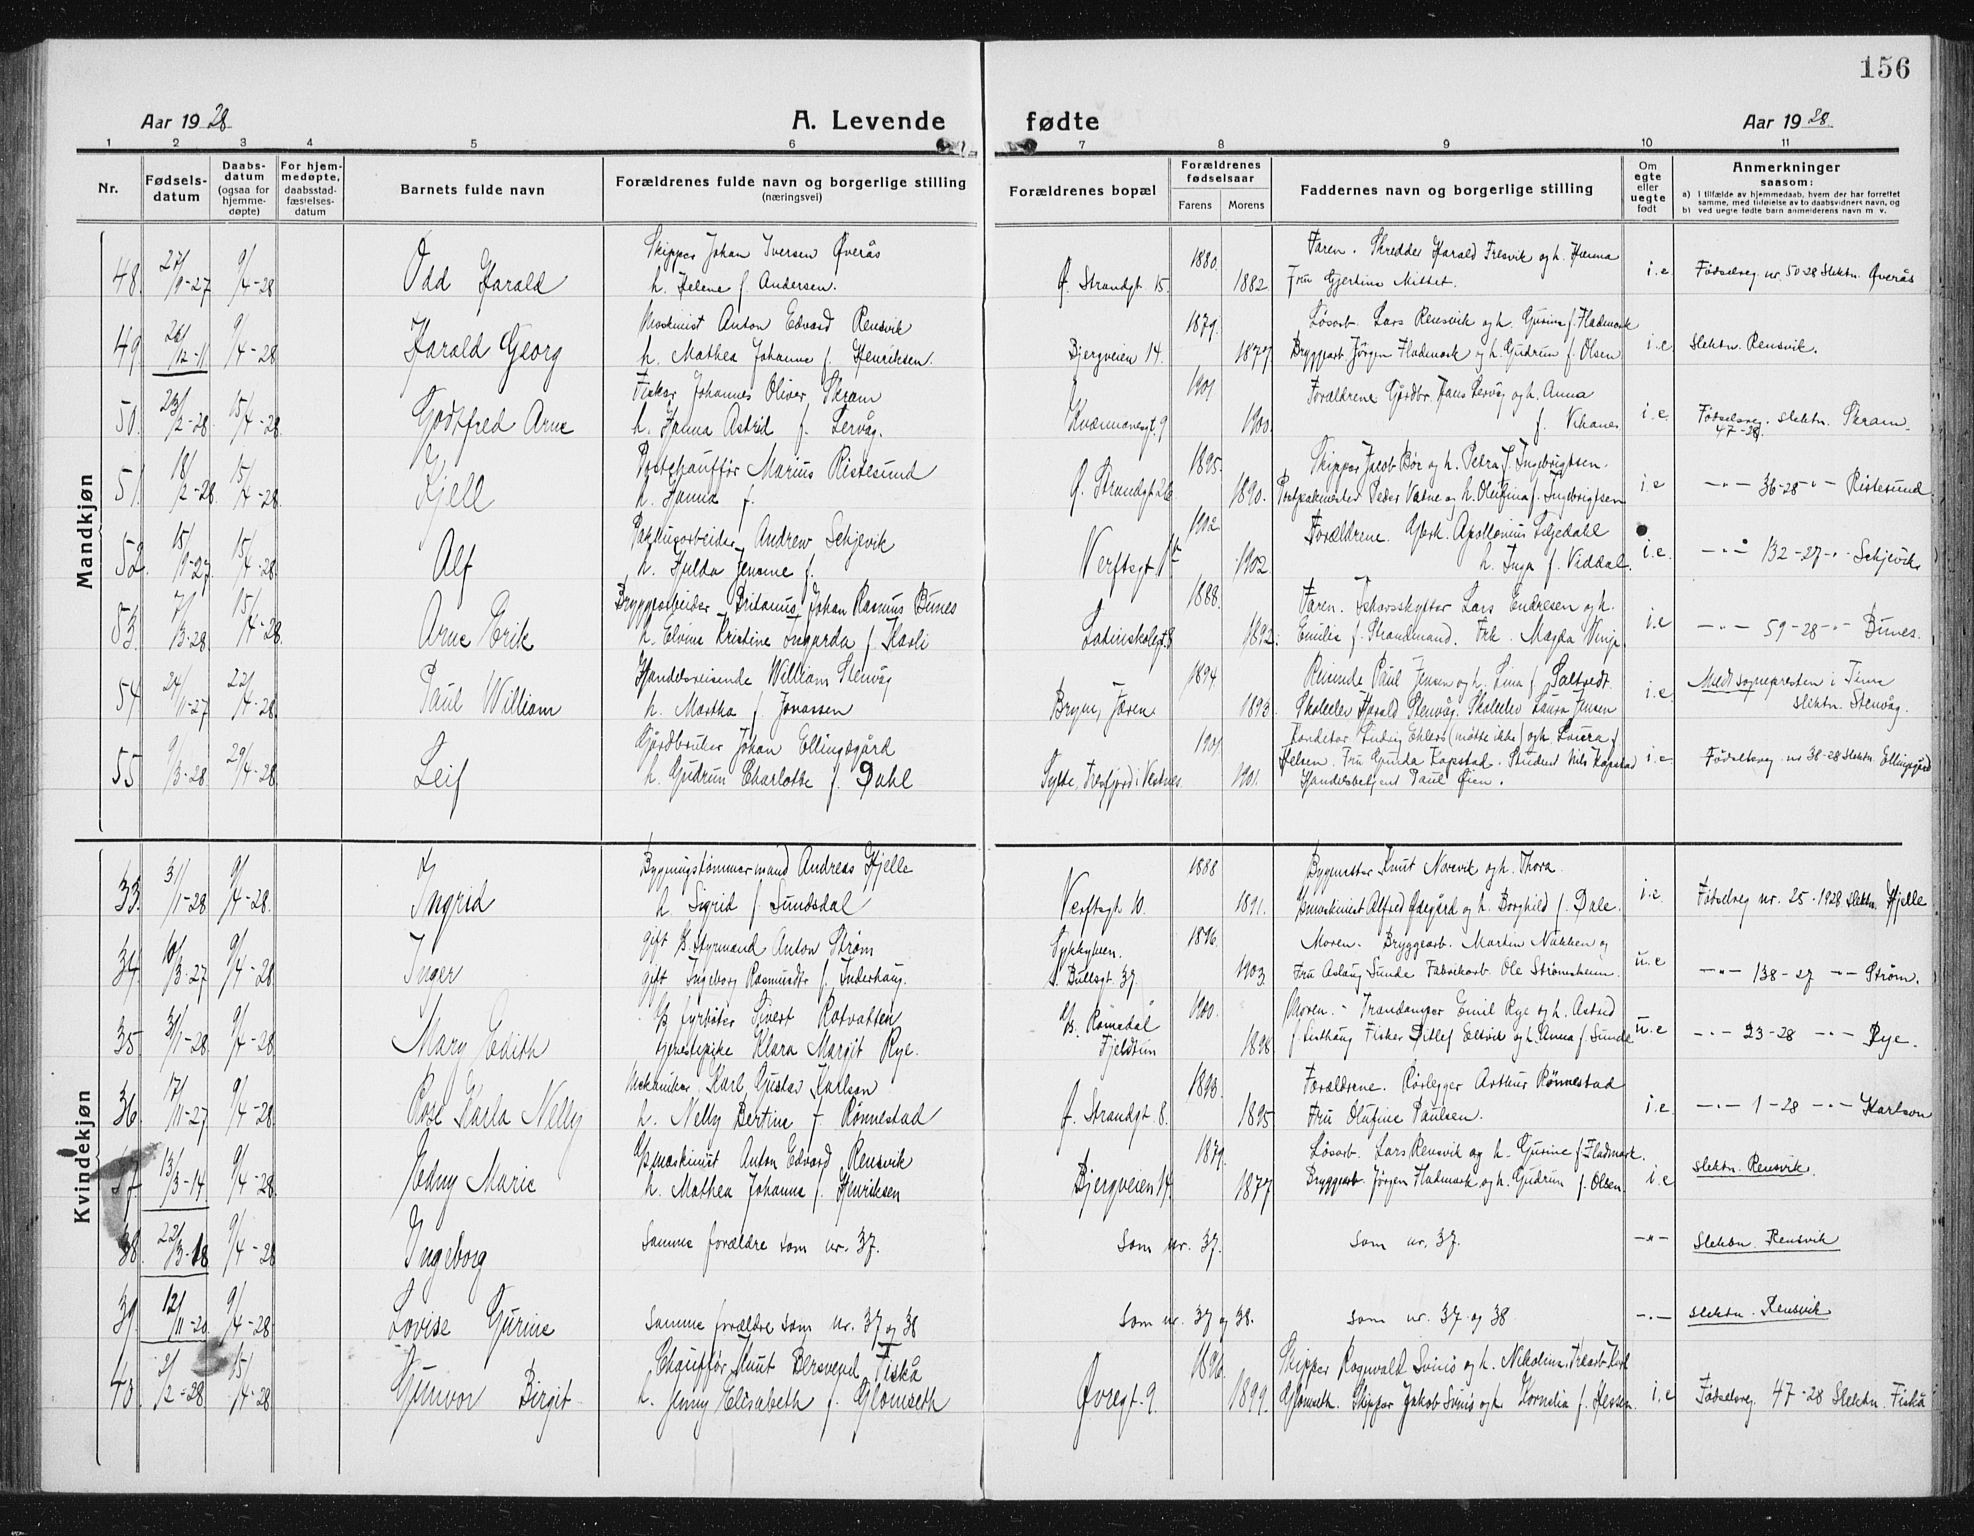 156
Aar 1928
A. Levende fødte
Aar 1928
1 2 3 4 5 6 7 8 9 10 11
Nr.
Fødsels-datum
Daabs-datum (ogsaa for hjemme-døpte)
For hjem-medøpte, daabsstad-fæstelses-datum
Barnets fulde navn
Forældrenes fulde navn og borgerlige stilling (næringsvei)
Forældrenes bopæl
Forældrenes fødselsaar
Farens Morens
Faddernes navn og borgerlige stilling
Om egte eller uegte født
Anmerkninger saasom:
a) I tilfælde av hjemmedaab, hvem der har forrettet samme, med tilføielse av to daabsvidners navn, og
b) ved uegte fødte barn anmelderens navn m. v.
Mandkjøn
48. 27/9-27 9/4-28 Odd Harald
Skipper Johan Iversen Øverås
h. Helene f. Andersen.
Ø. Strandgt 15. 1880. 1882
Faren. Skredder Harald Fresvik og h. Hanna
Fru Gjertine Mittet.
i.e Fødselsreg nr. 50-28 Slektn. Øverås
49 26/12-11 9/4-28 Harald Georg
Maskinist Anton Edvard Rensvik
h. Mathea Johanne f. Henriksen.
Bjergveien 14. 1879. 1877
Løsarb. Lars Rensvik og h. Gurine f. Fladmark
Bryggearb. Jørgen Fladmark og h. Gudrun f. Olsen
i.e. Slektn. Rensvik.
50. 23/2-28. 15/4-28. Godtfred Arne
Fisker Johannes Oliver Skram
h. Hanna Astrid f. Lervåg.
1901 1900.
Forældrene Gårdbr. Hans Lervåg og h. Anna
f. Vikanes
i.e Fødselsreg. 47-28. slektn. Skram.
51. 18/2-28 15/4-28. Kjell
Postchauffør Marius Ristesund
h. Hanna f.
Ø. Strandgt 26 1895. 1890.
Skipper Jacob Bøe og h. Petra f. Ingebrigtsen.
Peder Vatne og h. Olufina f. Ingebrigtsen
i.e -"- 36-28 -"- Ristesund
52. 15/9-27. 15/4-28. Alf
Pakhusarbeider Andrew Sekjevik
h. Hulda Jensine f.
Verftsgt 1 1902. 1902.
Forældrene. Apollonius Liljedahl
h. Inga f. Viddal.
i.e. -"- 132-27 -"- Sekjevik
53. 7/3-28. 15/4-28. Arne Erik
Bryggearbeider Britanus Johan Rasmus Bunes
h. Elvine Kristine Ingarda f. Hasli
Latinskolegt. 8 1888. 1892.
Faren. Lars Endresen og h.
Emilie f. Strandmand. Frk. Magda Vinje
i.e -"- 59-28 -"- Bunes.
54 24/11-27 22/4-28. Paul William
Handelsreisende William Stenvåg
h. Martha f. Jonassen
Bryne, Jæren 1894. 1893.
Reisende Paul Jensen og h. Lina f. Saltvedt.
Skoleelev Harald Stenvåg. Skoleelev Laura Jensen
i.e. Medt sognepresten i Time
slektn. Stenvåg.
55 9/3-28. 29/4-28. Leif
Gårdbruker Johan Ellingsgård
h. Gudrun Charlotte f. Dahl
Sylte, Tresfjord i Vestnes 1901. 1901.
Konditor Ludvig Ehlers (møtte ikke) og h. Lovera f.
Helsen. Fru Gunda Kopstad. Student Nils Kopstad
Handelsbetjent Paul Øien.
i.e. Fødselsreg nr 38-28 Slektn. Ellingsgård
Kvindekjøn
33. 31/1-28 9/4-28. Ingrid
Bygningstømmermand Andreas Hjelle
h. Sigrid f. Sundsdal
Verftsgt 10. 1888 1891.
Bygmester Knut Norevik og h. Thora.
Maskinist Alfred Ødegård og h. Borghild f. Dale.
i.e. Fødselsreg nr. 25-1928 slektn. Hjelle
34. 10/3-27. 9/4-28. Inger
gift Styrmand Anton Strøm
gift Ingeborg Rasmusdtr f. Inderhaug.
Sykkylven.
Bullsgt. 37. 1896. 1903.
Moren. Bryggearb. Martin Nakken og
Fru Aslaug Sunde Fabrikarb. Ole Strømsheim.
u.e -"- 138-27 -"- Strøm.
35. 31/1-28. 9/4-28. Mary Edith
fyrbøter Sivert Rotvatten
tjenestepike Klara Margit Rye.
Romedal
Fjeldtun 1900. 1898.
Moren. - Trandamper Emil Rye og h. Astrid
f. Listhaug Fisker Ditlef Ellvik og h. Anna f. Sunde
u.e -"- 23-28 -"- Rye.
36. 17/11-27 9/4-28. Rose Karla Nelly
Mekaniker Karl Gustav Karlson
h. Nelly Bertine f. Rønnestad
Ø. Strandgt. 8. 1893. 1895
Forældrene. Rørlegger Arthur Rønnestad
Fru Olufine Paulsen.
i.e -"- 1-28 -"- Karlson
37 13/3-14 9/4-28. Hedny Marie
maskinist Anton Edvard Rensvik
h. Mathea Johanne f. Henriksen
Bjergveien 14. 1879. 1877
Løsarb. Lars Rensvik og h. Gurine f. Fladmark.
Bryggearb. Jørgen Fladmark og h. Gudrun f. Olsen.
i.e slektn. Rensvik.
38. 22/3-18 9/4-28 Ingeborg
Samme forældre som nr. 37.
Som nr. 37.
som nr. 37.
-"- slektn. Rensvik
39. 12/11-20 9/4-28 Lovise Gurine
Samme forældre som nr. 37 og 38
Som nr. 37 og 38.
som nr. 37 og 38
-"- slektn. Rensvik
40. 2/2-28 15/4-28 Gunvor Birgit
Chauffør Knut Bersvend Fiskå
h. Jenny Elisabeth f. Glomseth
Øvregt. 9. 1896. 1899.
Skipper Ragnvald Svinø og h. Nikolina. Træarb. Karl
Glomseth. Skipper Jakob Svinø og h. Kornelia f. Hessen.
i.e Fødselsreg. 47-28 Slektn. Fiskå